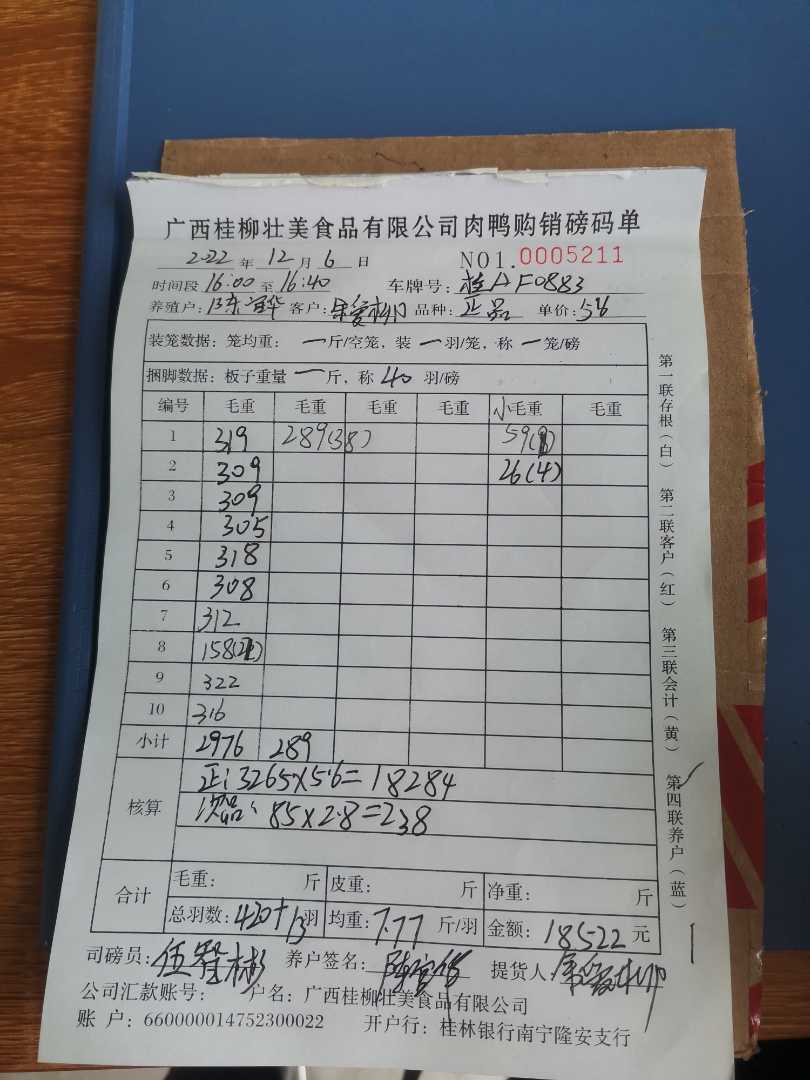 广西桂柳壮美食品有限公司肉鸭购销磅码单
2022年12月6日 NO1.0005211
时间段16:00至16:40 车牌号:桂AF0883
养殖户: 客户: 品种:正品 单价:5.6
装笼数据:笼均重:一斤/空笼,装一羽/笼,称一笼/磅
捆脚数据:板子重量一斤,称40羽/磅
编号 毛重 毛重 毛重 毛重 小毛重 毛重
1 319 289(38) 59
2 309 26(4)
3 309
4 305
5 318
6 308
7 312
8 158
9 322
10 316
小计 2976 289
核算 正:3265×5.6=18284
次品:85×2.8=238
合计 毛重: 斤 皮重: 斤 净重: 斤
总羽数:420+13羽 均重:7.77斤/羽 金额:18522元
司磅员: 养户签名: 提货人:
公司汇款账号: 户名:广西桂柳壮美食品有限公司
账 户:660000014752300022 开户行:桂林银行南宁隆安支行
第一联存根(白) 第二联客户(红) 第三联会计(黄) 第四联养户(蓝)